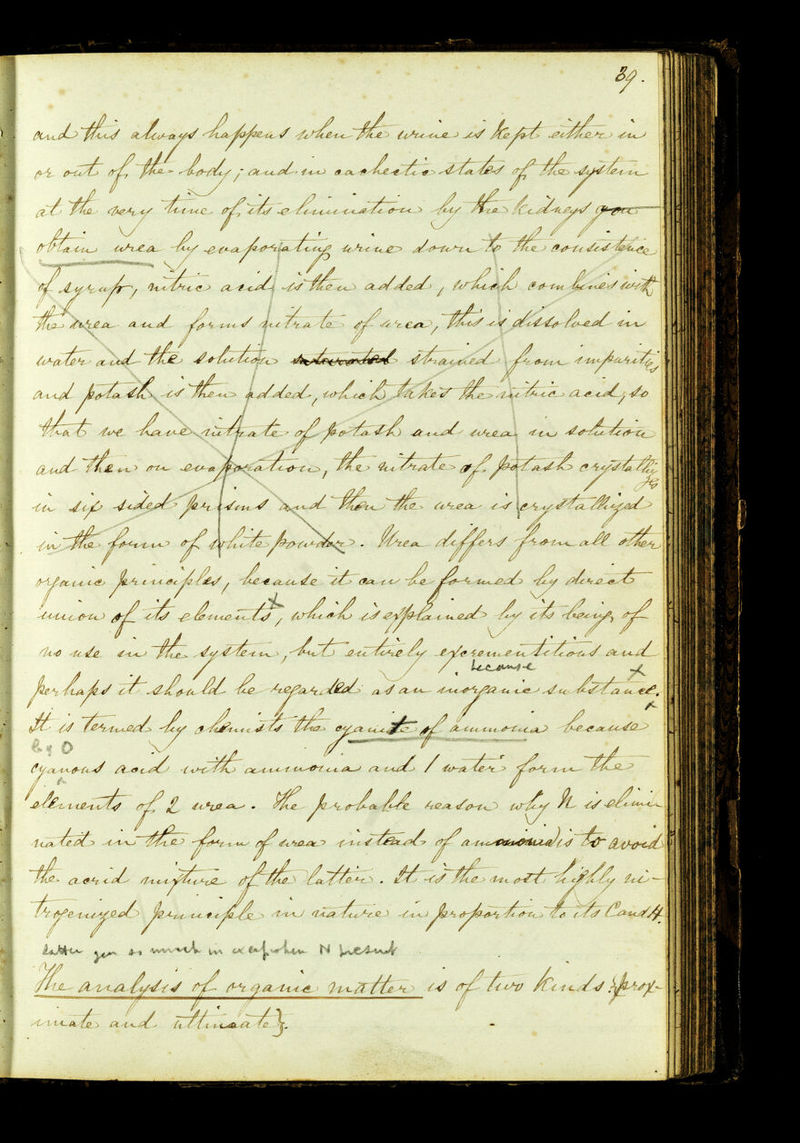 39.
and this always happens when the urine is kept either in
or out of the body; and in cachectic states of the system
at the very time of its elimination by the kidneys you
obtain urea by evaporating urine down to the consistence
of syrup, nitric acid is then added, which combines with
the urea and forms nitrate of urea, this is dissolved in
water and the solution saturated strained from impurities
and potash is then added, which takes the nitric acid, so
that we have nitrate of potash and urea in solution
and then on evaporation, the nitrate of potash crystallizes
in six sided prisms and then the urea is crystallized
in the form of white powder. Urea differs from all other
organic principles, because it can be formed by direct
union of its elements x, which is explained by its being of
no use in the system, but entirely excrementitious and
because x
perhaps it should be regarded as an inorganic substance.
It is termed by chemists the cyanate of ammonia because
cyanous acid with ammonia and 1 water form the
elements of 2 urea. The probable reason why N is elimi-
nated in the form of urea instead of ammonia is to avoid
the acrid mixture of the latter. It is the most highly ni-
trogenized principle in nature in proportion to its C and H.
so much in N present
The analysis of organic matter is of two kinds {prox-
imate and ultimate}.